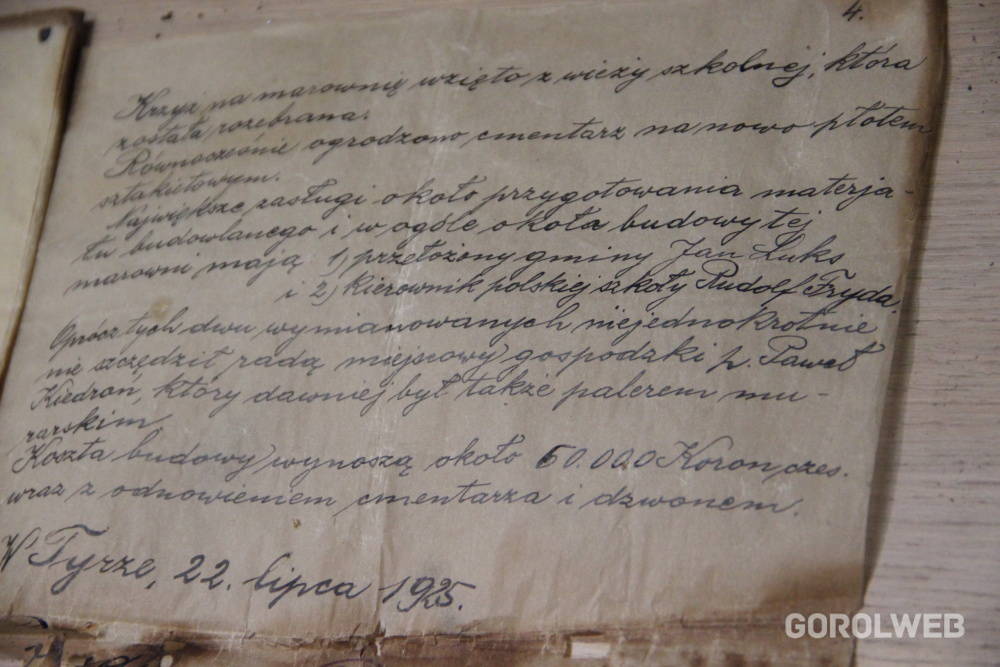 4.
Krzyż na marownię wzięto z wieży szkolnej, która
została rozebrana.
Równocześnie ogrodzono cmentarz na nowo płotem
sztakietowym.
Największe zasługi około przygotowania materja-
łu budowlanego i w ogóle okoła budowy tej
marowni mają 1) przełożony gminy Jan Łuks
i 2) kierownik polskiej szkoły Rudolf Fryda.
Oprócz tych dwu wymianowanych niejednokrotnie
nie szczędził radą miejscowy gospodzki p. Paweł
Kiedroń, który dawniej był także palerem mu-
rarskim.
Koszta budowy wynoszą około 60.000 Koron czes.
wraz z odnowieniem cmentarza i dzwonem.
W Tyrze, 22. lipca 1925.
GOROLWEB